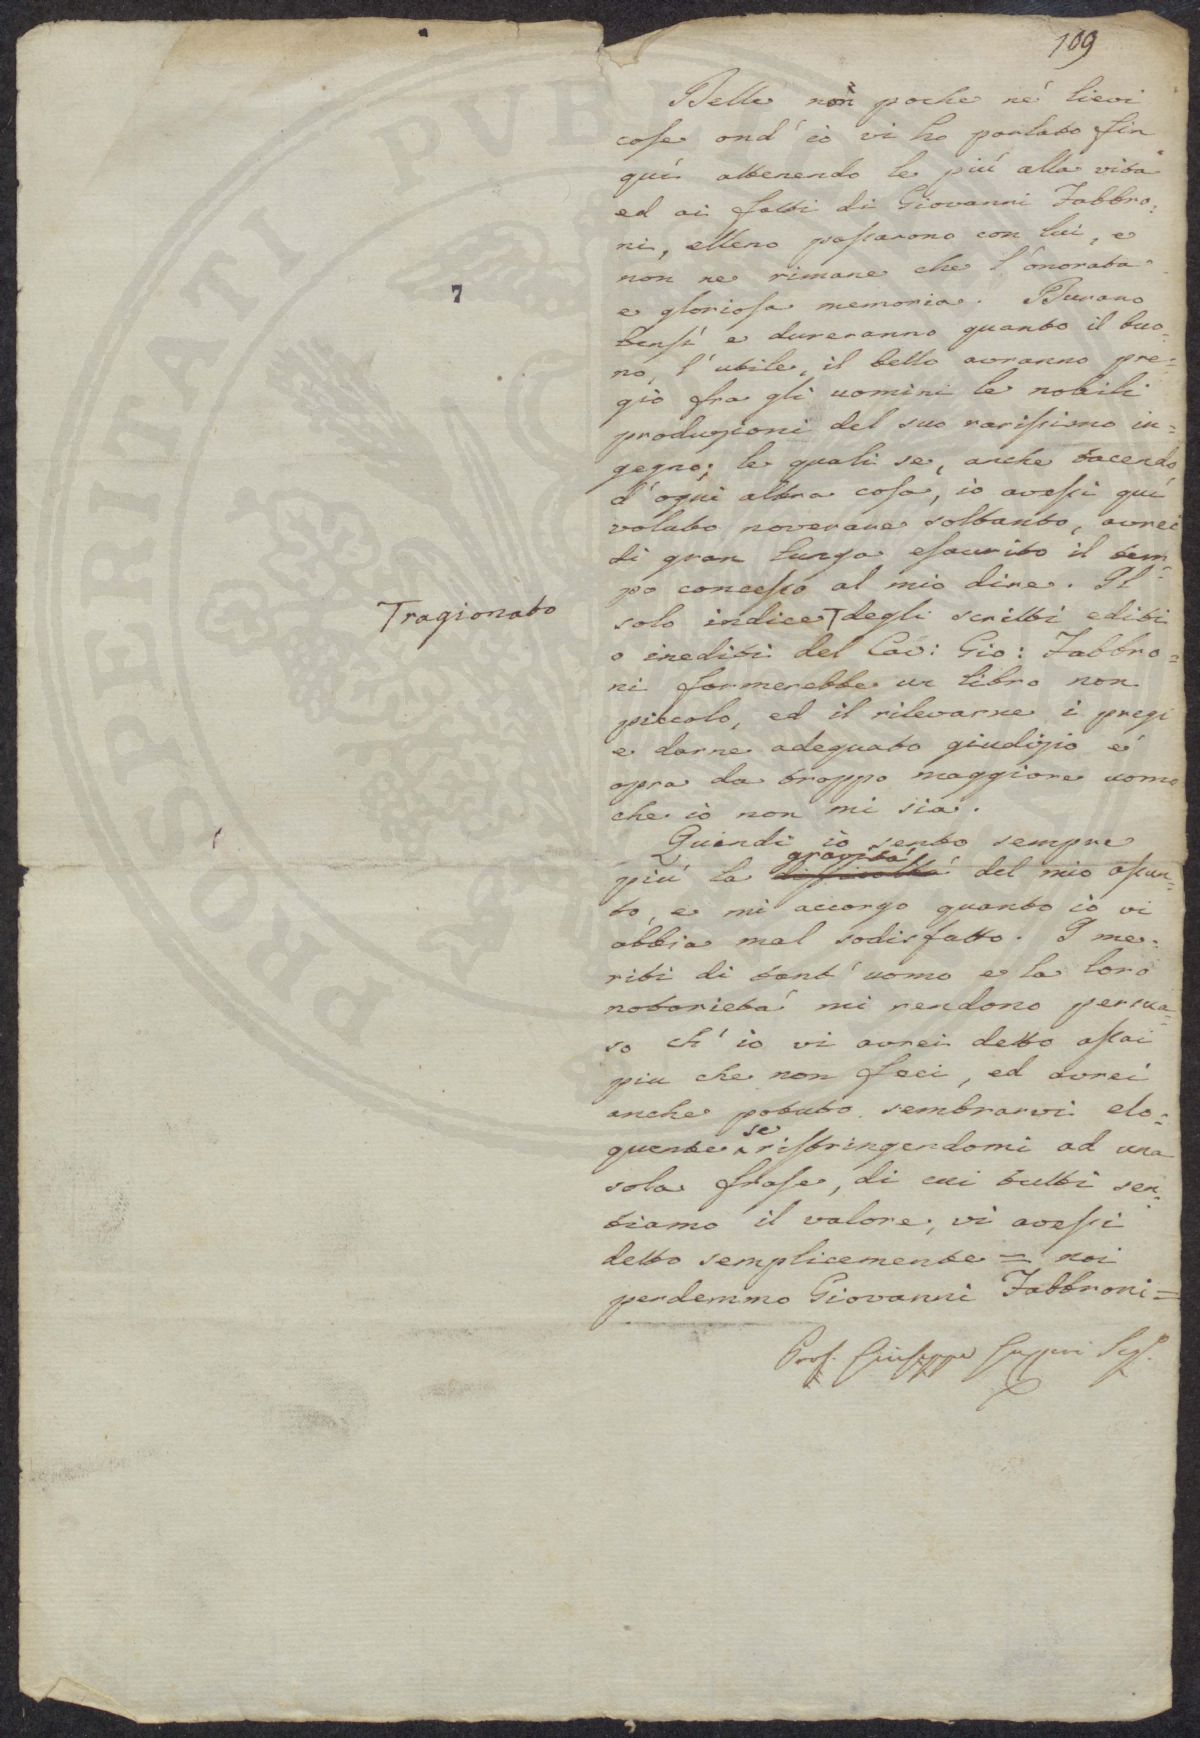 109
Delle non poche né lievi
cose ond' io vi ho parlato fin
quì attenendo le più alla vita
ed ai fatti di Giovanni Fabbro:
ni, elleno passarono con lui, e
non ne rimane che l'onorata
e gloriosa memoria. Durano
7
bensì e dureranno quanto il buo-
no, l'utile, il bello avranno pre-
gio fra gli uomini le nobili
produzioni del suo rarissimo in=
gegno; le quali se, anche tacendo
d'ogni altra cosa, io avessi quì
voluto noverare soltanto, avrei
di gran lunga esaurito il tem-
po concesso al mio dire. Il
Tragionato
solo indice T degli scritti editi
o inediti del Cav: Gio: Fabbro=
ni formerebbe un libro non
piccolo, ed il rilevarne i pregi
e darne adeguato giudizio é
opra da troppo maggiore uomo
che io non mi sia.
Quindi io sento sempre
gravità
più la difficoltà del mio assun=
to, e mi accorgo quanto io vi
abbia mal sodisfatto. I me:
riti di tant' uomo e la loro
notorietà mi rendono persua=
so ch' io vi avrei detto assai
piu che non feci, ed avrei
anche potuto sembrarvi elo=
se
quente ristringendomi ad una
sola frase, di cui tutti sen=
tiamo il valore, vi avessi
detto semplicemente = noi
perdemmo Giovanni Fabbroni =
Prof. Giuseppe
PROSPERITATI PVBLICAE